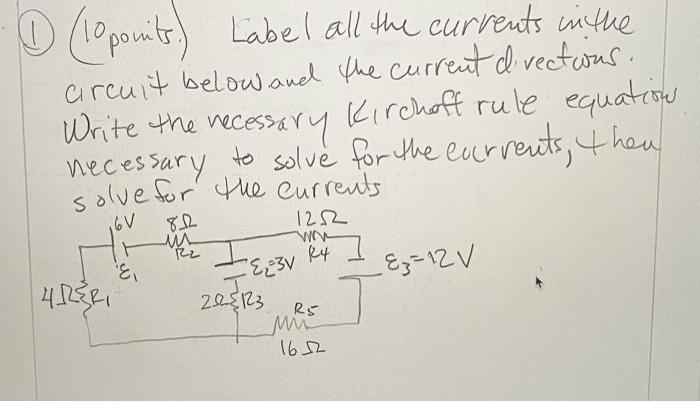 ① (10 points.) Label all the currents in the
circuit below and the current directions.
Write the necessary Kirchoff rule equations
necessary to solve for the currents, then
solve for the currents
6V 8Ω 12Ω
R2 R4
ε1 ε2=3V ε3=12V
4Ω R1 2Ω R3 R5
16Ω